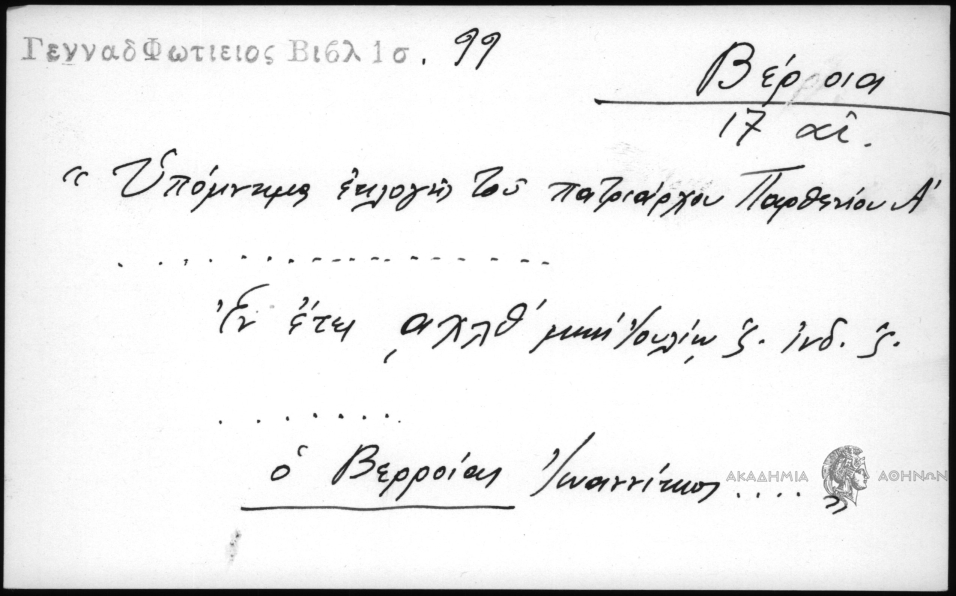 Γενναδ Φωτιειος Βιβλ 1 σ. 99
Βέρροια
17 αἰ.
“ Ὑπόμνημα ἐκλογῆς τοῦ πατριάρχου Παρθενίου Α΄
. . . . . . . . . . . . . . . . . . . .
Ἐν ἔτει ͵αχλθ΄ μηνὶ Ἰουλίῳ ζ. ἰνδ. ζ.
. . . . . . . .
ὁ Βερροίας Ἰωαννίκιος . . . . ”
ΑΚΑΔΗΜΙΑ ΑΘΗΝΩΝ